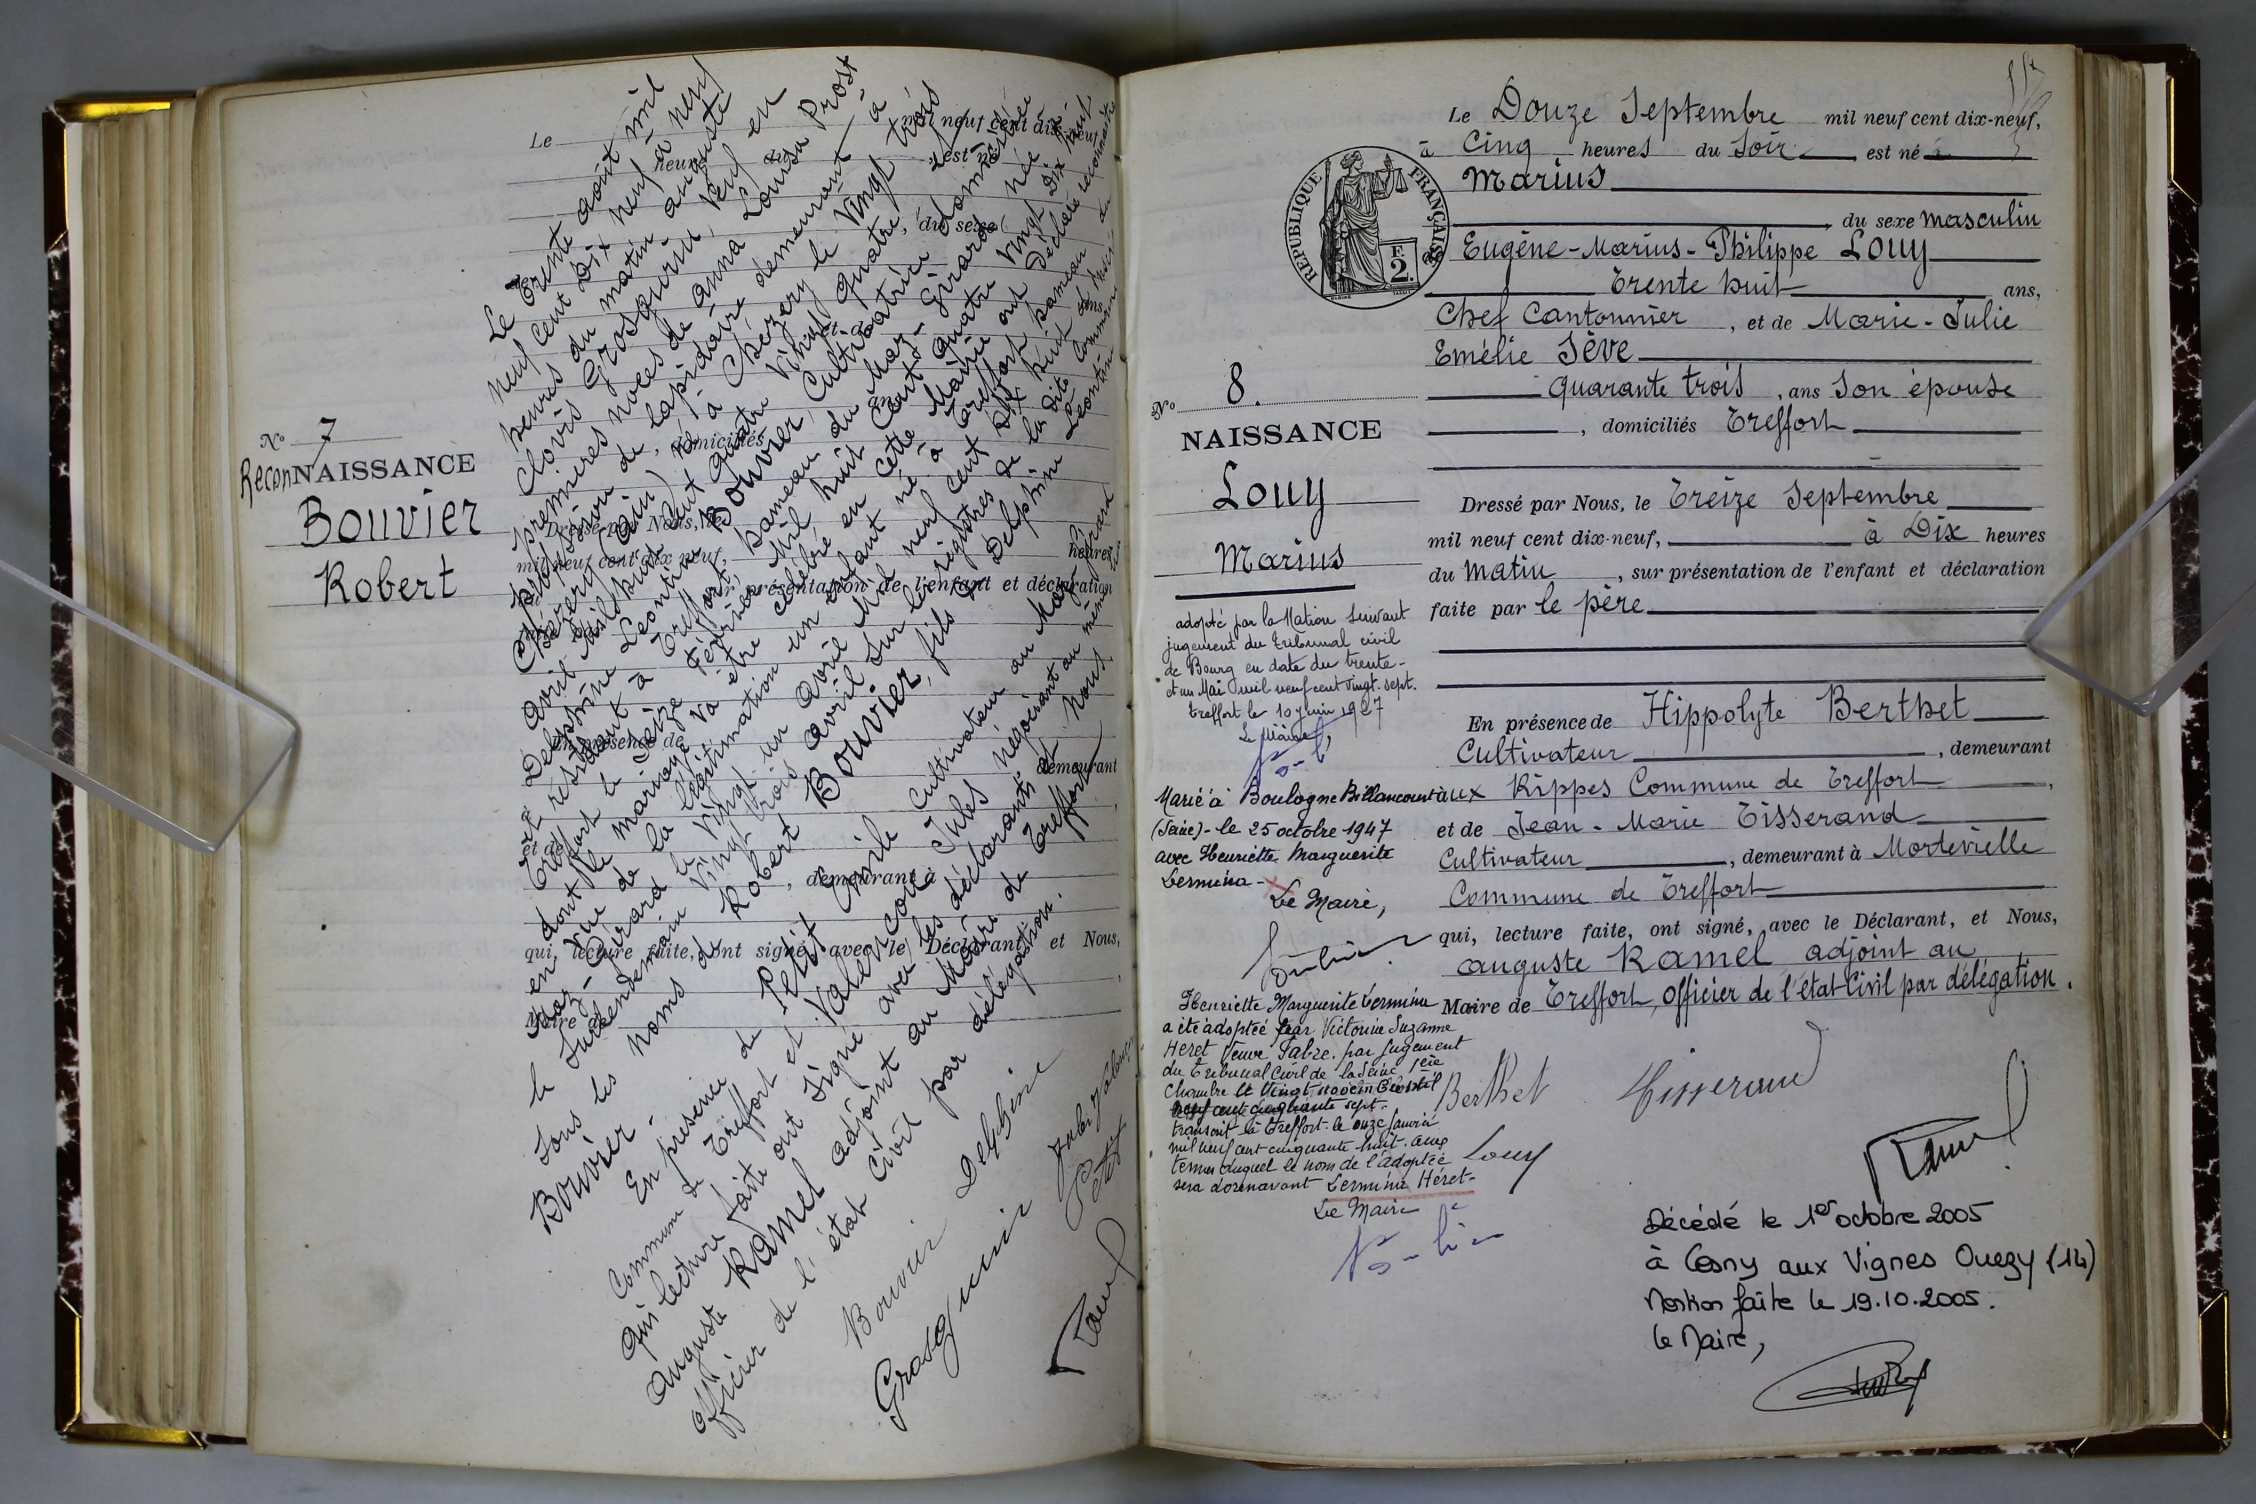 N° 7
ReconNAISSANCE
Bouvier
Robert
Le mil neuf cent dix-neuf,
heure du est né
, du sexe
et de
ans
, domiciliés
Dressé par Nous, le
mil neuf cent dix-neuf, heures
présentation de l'enfant et déclaration
En présence de
demeurant
et de
, demeurant à
qui, lecture faite, ont signé, avec le Déclarant, et Nous,
Maire de
Le trente août mil
neuf cent Dix neuf à neuf
heures du matin auguste
Clovis Grosgurin, Veuf en
premières noces de anna Louisa Prost
profession de lapidaire demeurant à
Chézery (ain) né à Chézery le Vingt trois
avril Mil huit cent quatre Vingt quatre, et
Delphine Léontine Bouvier, Cultivatrice domiciliée
et résidant à Treffort, hameau du Moz-Girard née à
Treffort le Seize Février Mil huit cent quatre Vingt Dix huit,
dont le mariage va être célébré en cette Mairie ont Déclaré reconnaître
en vue de la légitimation un enfant né à Treffort hameau du
Moz-Girard le Vingt un avril Mil neuf cent Dix huit et inscrit
le surlendemain Vingt trois avril sur les registres de la dite Commune
sous les noms de Robert Bouvier, fils de Delphine Léontine
Bouvier.
En présence de Petit Emile Cultivateur au Moz-Girard
Commune de Treffort et Jules négociant au même
qui lecture faite ont signé avec les déclarants et nous
auguste Ramel adjoint au Maire de Treffort
officier de l'état civil par délégation.
Bouvier Delphine
Grosgurin
Petit
Ramel
N° 8.
NAISSANCE
Louy
Marius
adopté par la Nation suivant
jugement du tribunal civil
de Bourg en date du trente-
et un Mai mil neuf cent vingt-sept.
Treffort le 10 juin 1927
Le Maire,
Marié à Boulogne Billancourt
(Seine) - le 25 octobre 1947
avec Henriette Marguerite
Lermina -
Le Maire,
Henriette Marguerite Lermina
a été adoptée par Victorine Suzanne
Heret Veuve Fabre. par jugement
du Tribunal Civil de la Seine 1ère
Chambre le Vingt
neuf cent cinquante sept.
transcrit à Treffort le onze janvier
mil neuf cent cinquante-huit. aux
termes duquel le nom de l'adoptée
sera dorénavant Lermina Héret -
Le Maire
REPUBLIQUE FRANÇAISE
F.
2.
Le Douze Septembre mil neuf cent dix-neuf,
à Cinq heures du soir est né
Marius
, du sexe masculin
Eugène-Marius-Philippe Louy
Trente huit ans,
Chef Cantonnier , et de Marie-Julie
Emélie Sève
quarante trois , ans son épouse
, domiciliés Treffort
Dressé par Nous, le Treize Septembre
mil neuf cent dix-neuf, à Dix heures
du matin , sur présentation de l'enfant et déclaration
faite par le père
En présence de Hippolyte Berthet
Cultivateur , demeurant
aux Rippes Commune de Treffort ,
et de Jean-Marie Tisserand
Cultivateur , demeurant à Morteville
Commune de Treffort
qui, lecture faite, ont signé, avec le Déclarant, et Nous,
auguste Ramel adjoint au
Maire de Treffort, officier de l'état Civil par délégation.
Berthet Tisserand
Ramel
Louy
Décédé le 1er octobre 2005
à Cesny aux Vignes Ouezy (14)
Mention faite le 19.10.2005.
le Maire,